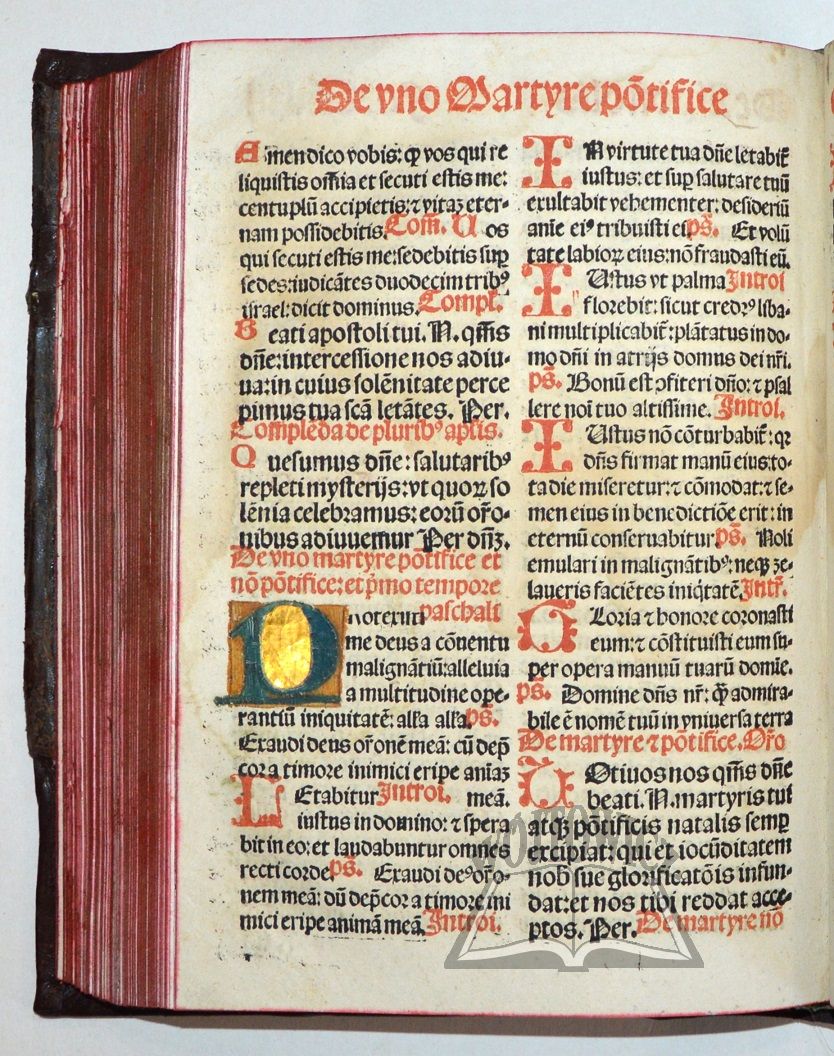 De vno Martyre põtifice
Amen dico vobis: ꝙ vos qui re
liquistis om̃ia et secuti estis me:
centuplũ accipietis: ⁊ vitaꝫ eter-
nam possidebitis. Com̃. U os
qui secuti estis me: sedebitis suꝑ
sedes: iudicãtes duodecim tribꝰ
israel: dicit dominus. Compl̃.
Beati apostoli tui. N. q̃m̃s
dñe: intercessione nos adiu-
ua: in cuius solẽnitate perce
pimus tua scã letãtes. Per.
Compleda de pluribꝰ ap̃lis.
Quesumus dñe: salutaribꝰ
repleti mysterijs: vt quoꝝ so
lẽnia celebramus: eorũ or̃o-
nibus adiuuemur Per dñꝫ.
De vno martyre põtifice et
nõ põtifice: et p̃mo tempore
paschali
Protexisti
me deus a cõuentu
malignãtiũ: alleluia
a multitudine ope-
rantiũ iniquitatẽ: all'a all'a. ps̃.
Exaudi deus or̃onẽ meã: cũ dep̃
cor a timore inimici eripe aniãꝫ
meã.
Letabitur Introi.
iustus in domino: ⁊ spera
bit in eo: et laudabuntur omnes
recti corde. ps̃. Exaudi deꝰ or̃o-
nem meã: dũ dep̃cor a timore ini
mici eripe animã meã. Introi.
IN virtute tua dñe letabit̃
iustus: et suꝑ salutare tuũ
exultabit vehementer: desideriũ
anĩe eiꝰ tribuisti ei. ps̃. Et volũ
tate labioꝝ eius: nõ fraudasti eũ.
IUstus vt palma Introi
florebit: sicut cedrꝰ liba-
ni multiplicabit̃: plãtatus in do-
mo dñi in atrijs domus dei nr̃i.
ps̃. Bonũ est ꝯfiteri dño: ⁊ psal
lere noĩ tuo altissime. Introi.
IUstus nõ cõturbabit̃: qꝛ
dñs firmat manũ eius: to-
ta die miseretur: ⁊ cõmodat: ⁊ se-
men eius in benedictiõe erit: in
eternũ conseruabitur. ps̃. Noli
emulari in malignãtibꝰ: neqꝫ ze-
laueris faciẽtes iniq̃tatẽ. Intr̃.
Gloria ⁊ honore coronasti
eum: ⁊ cõstituisti eum su-
per opera manuũ tuarũ domĩe.
ps̃. Domine dñs nr̃: q̃ admira-
bile ẽ nomẽ tuũ in vniuersa terra
De martyre ⁊ põtifice. Or̃o
Uotiuos nos q̃m̃s dñe
beati. N. martyris tui
atqꝫ põtificis natalis semꝑ
excipiat: qui et iocũditatem
nob̃ sue glorificatõis infun-
dat: et nos tibi reddat acce-
ptos. Per. De martyre nõ